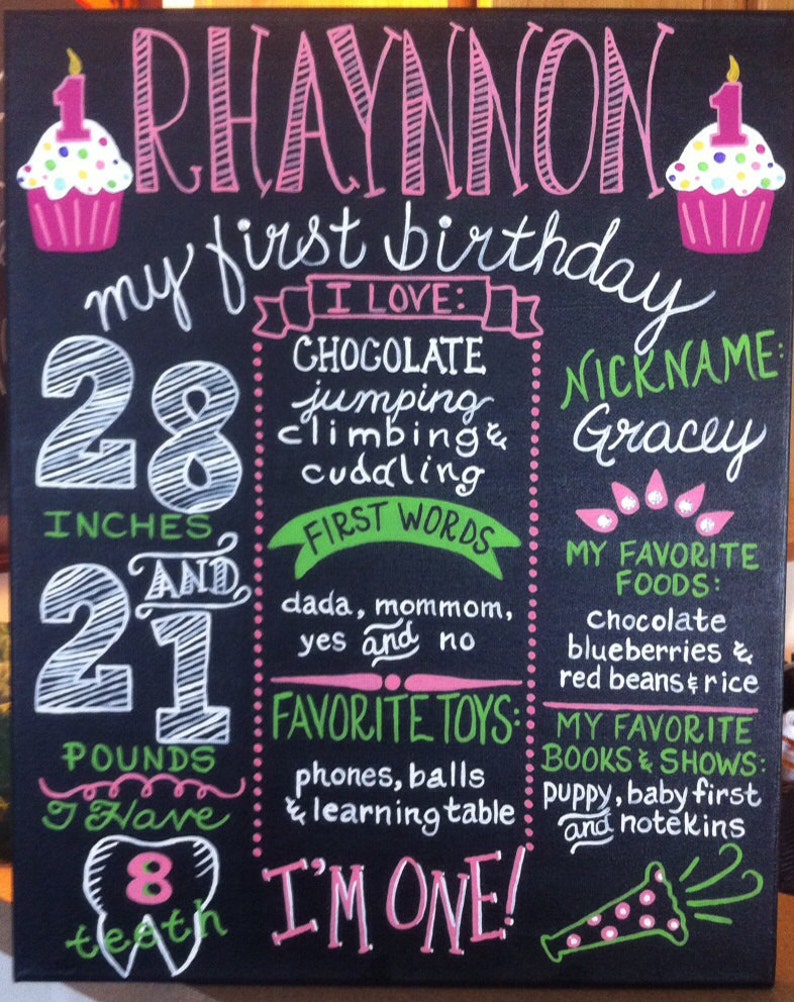 RHAYNNON
1
1
my first birthday
28
INCHES
AND
21
POUNDS
I Have
8
teeth
I LOVE:
CHOCOLATE
jumping
climbing &
cuddling
FIRST WORDS
dada, mommom,
yes and no
FAVORITE TOYS:
phones, balls
& learning table
I'M ONE!
NICKNAME:
Gracey
MY FAVORITE
FOODS:
chocolate
blueberries &
red beans & rice
MY FAVORITE
BOOKS & SHOWS:
puppy, baby first
and notekins